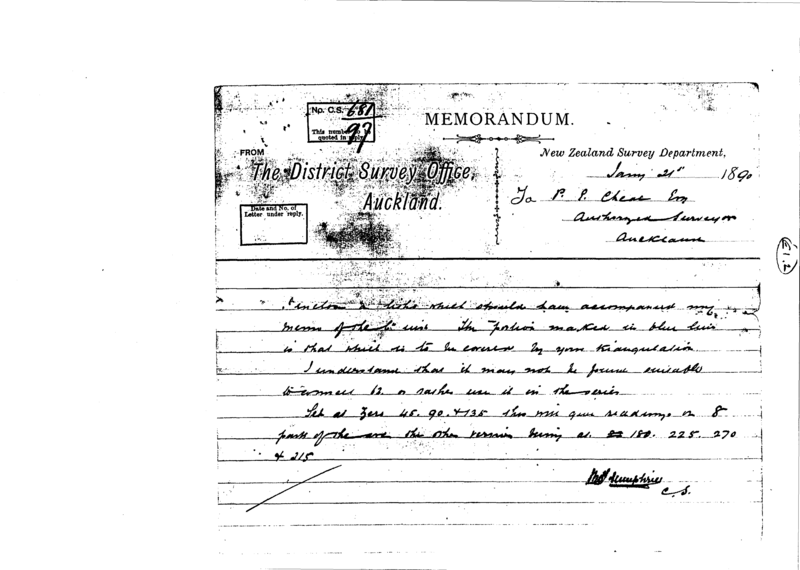 No. C.S. 681
97
This number to be
quoted in reply.
MEMORANDUM.
FROM
The District Survey Office,
Auckland.
Date and No. of
Letter under reply.
New Zealand Survey Department,
Jany 21st 1890
To P. E. Cheal Esq
Authorized Surveyor
Auckland
E1.2
I enclose a litho which should have accompanied my
memo of the inst The portion marked in blue
is that which is to be covered by your triangulation
I understand that it may not be found suitable
to connect or rather use it in the series
Set at Zero 45. 90. & 135 this will give readings on 8
parts of the arc the other vernier being at 180. 225. 270
& 315
Humphries
C.S.